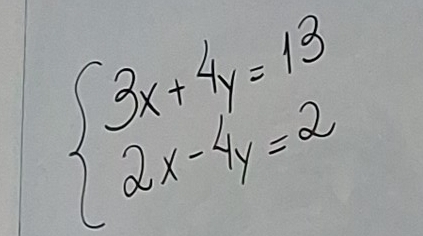 3x + 4y = 13
2x - 4y = 2